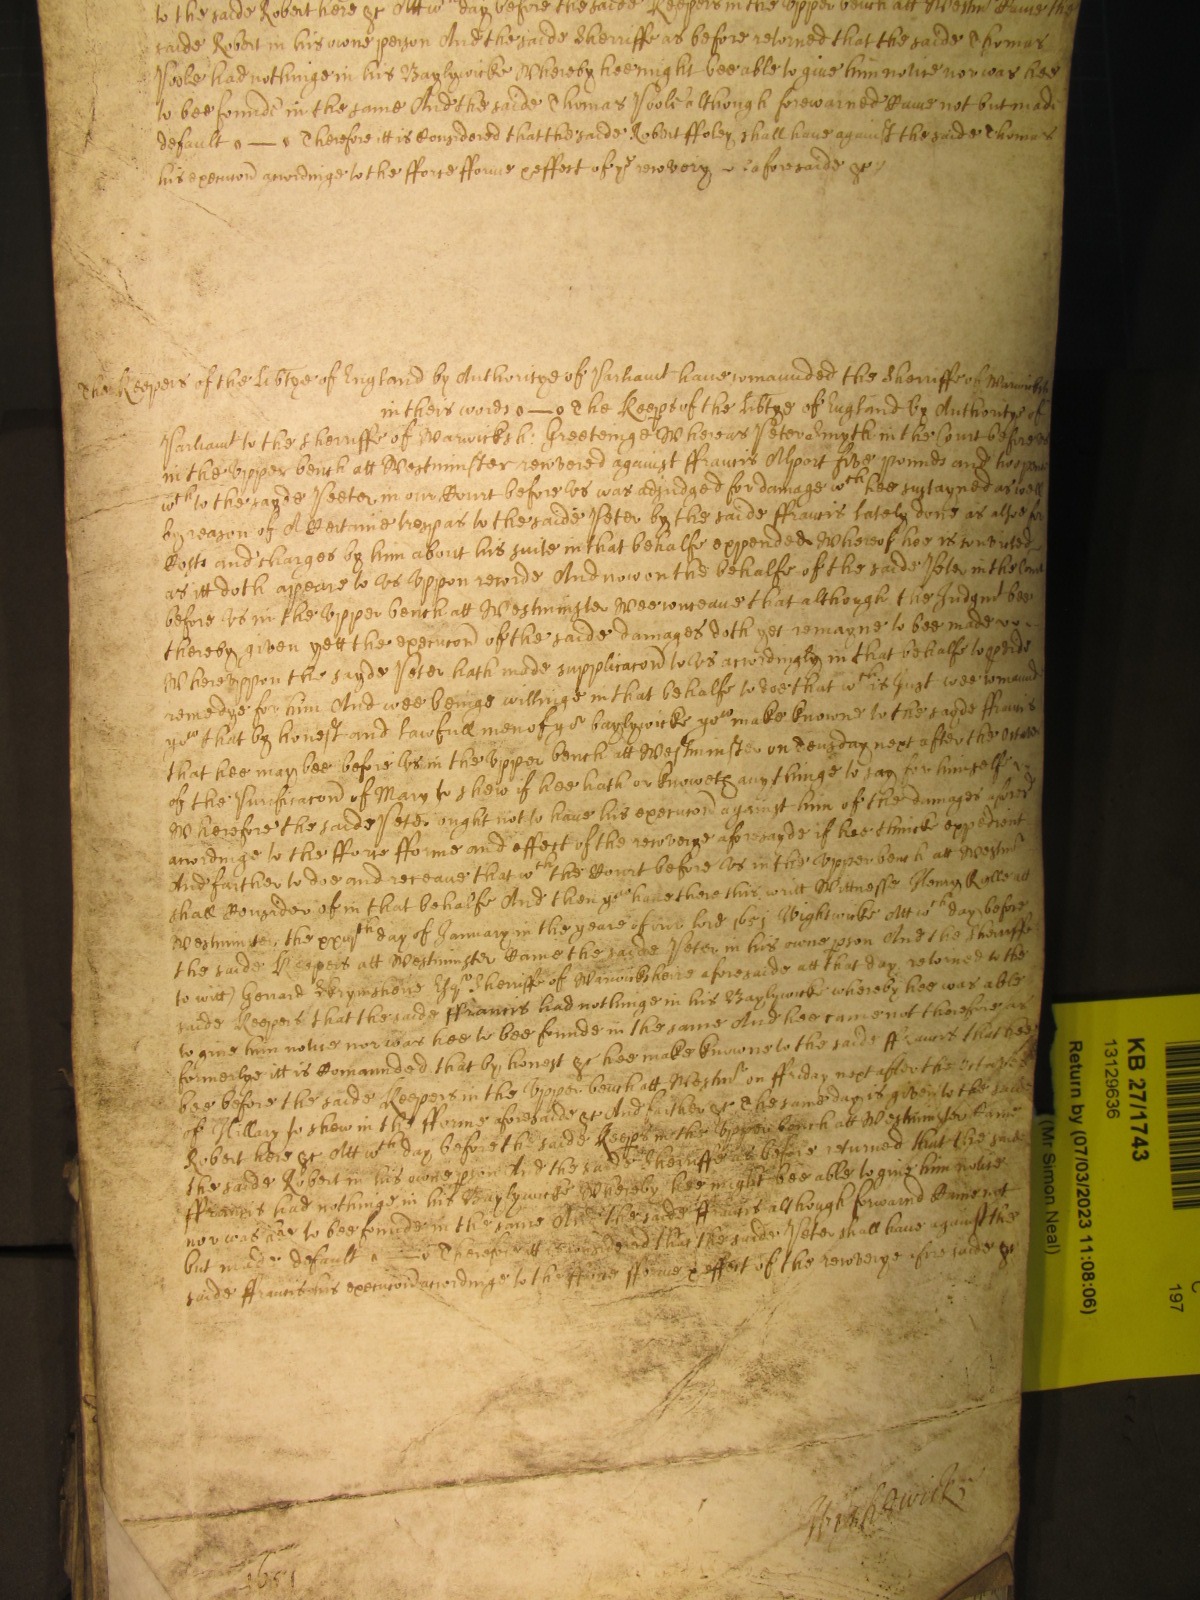 to the saide Robert here &c Att wch day before the saide Keepers in the Upper bench att Westmr Came the
saide Robert in his owne person And the saide Sherriffe as before retorned that the saide Thomas
Poole had nothinge in his Baylywicke Whereby hee might bee able to give him notice nor was hee
to bee founde in the same And the saide Thomas Poole although forewarned Came not but made
default Therefore itt is Considered that the saide Robert ffoley shall have against the saide Thomas
his execucon accordinge to the fforce fforme & effect of ye recovery aforesaide &c
The Keepers of the Libtye of England by Authoritye of Parliamt have comaunded the Sherriffe of Warwicksh
in theis words The Keeps of the Libtye of England by Authoritye of
Parliamt to the Sherriffe of Warwicksh: Greeteinge Whereas Peter Smyth in the Court before us
in the Upper bench att Westminster recovered against ffrancis Alport five pounds and
wch to the sayde Peeter in our Court before Us was adjudged for damage wch hee sustayned as well
by reason of A Certeine trespas to the saide Peter by the saide ffrancis lately done as alsoe for
Costs and charges by him about his suite in that behalfe expended Whereof hee is convicted
as itt doth apeare to Us Uppon recorde And now on the behalfe of the saide Peter in the Court
before Us in the Upper bench att Westminster Wee conceave that although the Judgmt bee
thereby given yett the execucon of the saide damages doth yet remayne to bee made
Whereuppon the sayde Peter hath made supplicacon to Us accordingly in that behalfe to pvide
remedye for him And wee beinge willinge in that behalfe to doe that wch is Just wee comaund
you that by honest and lawfull men of yor baylywicke you make knowne to the sayde ffrancis
that hee may bee before Us in the Upper bench att Westminster on Teusday next after the
of the Purificacon of Mary to shew if hee hath or knoweth any thinge to say for himselfe
Wherefore the saide Peter ought not to have his execucon against him of the damages aforesd
accordinge to the fforce fforme and effect of the recoverye aforesayde if hee thinck expedient
And farther to doe and receave that wch the Court before Us in the Upper bench att Westmr
shall Consider of in that behalfe And then you have there this writt Wittnesse Henry Rolle att
Westminster the day of January in the yeare of our lord 1651 Wightwicke Att wch day before
the saide Keepers att Westminster Came the saide Peter in his owne pson And the Sherriffe
to witt Gerrard Esqr Sherriffe of Warwicksheire aforesaide att that day retorned to the
saide Keepers that the saide ffrancis had nothinge in his Baylywicke whereby hee was able
to give him notice nor was hee to bee founde in the same And hee came not therefore as
formerlye itt is Comaunded that by honest &c hee make knowne to the saide ffrancis that hee
bee before the saide Keepers in the Upper bench att Westmr on ffriday next after the
of Hillary to shew in the fforme aforesaide &c And farther &c The same day is given to the saide
Robert here &c Att wch day before the saide Keeps in the Upper bench att Westminster Came
the saide Robert in his owne pson And the saide Sherriffe as before retorned that the saide
ffrancis had nothinge in his Baylywicke Whereby hee might bee able to give him notice
nor was hee to bee founde in the same And the saide ffrancis although forwarnd Came not
but made default Therefore itt is considered that the saide Peter shall have against the
saide ffrancis his execucon accordinge to the fforce fforme & effect of the recoverye afore saide &c
Wightwick
1651
KB 27/1743
13129636
Return by (07/03/2023 11:08:06)
(Mr Simon Neal)
C
197